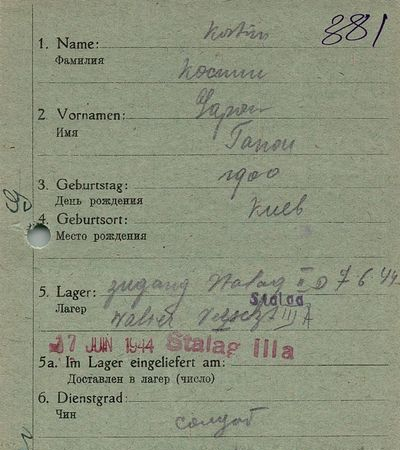 881
1. Name: Kostin
Фамилия
Костин
2 Vornamen:
Имя
3. Geburtstag: 1900
День рождения
4. Geburtsort: Киев
Место рождения
5. Lager: Zugang Stalag II D 7.6.44
Лагер Stalag III A
17 JUIN 1944 Stalag IIIa
5a. Im Lager eingeliefert am:
Доставлен в лагер (число)
6. Dienstgrad:
Чин солдат